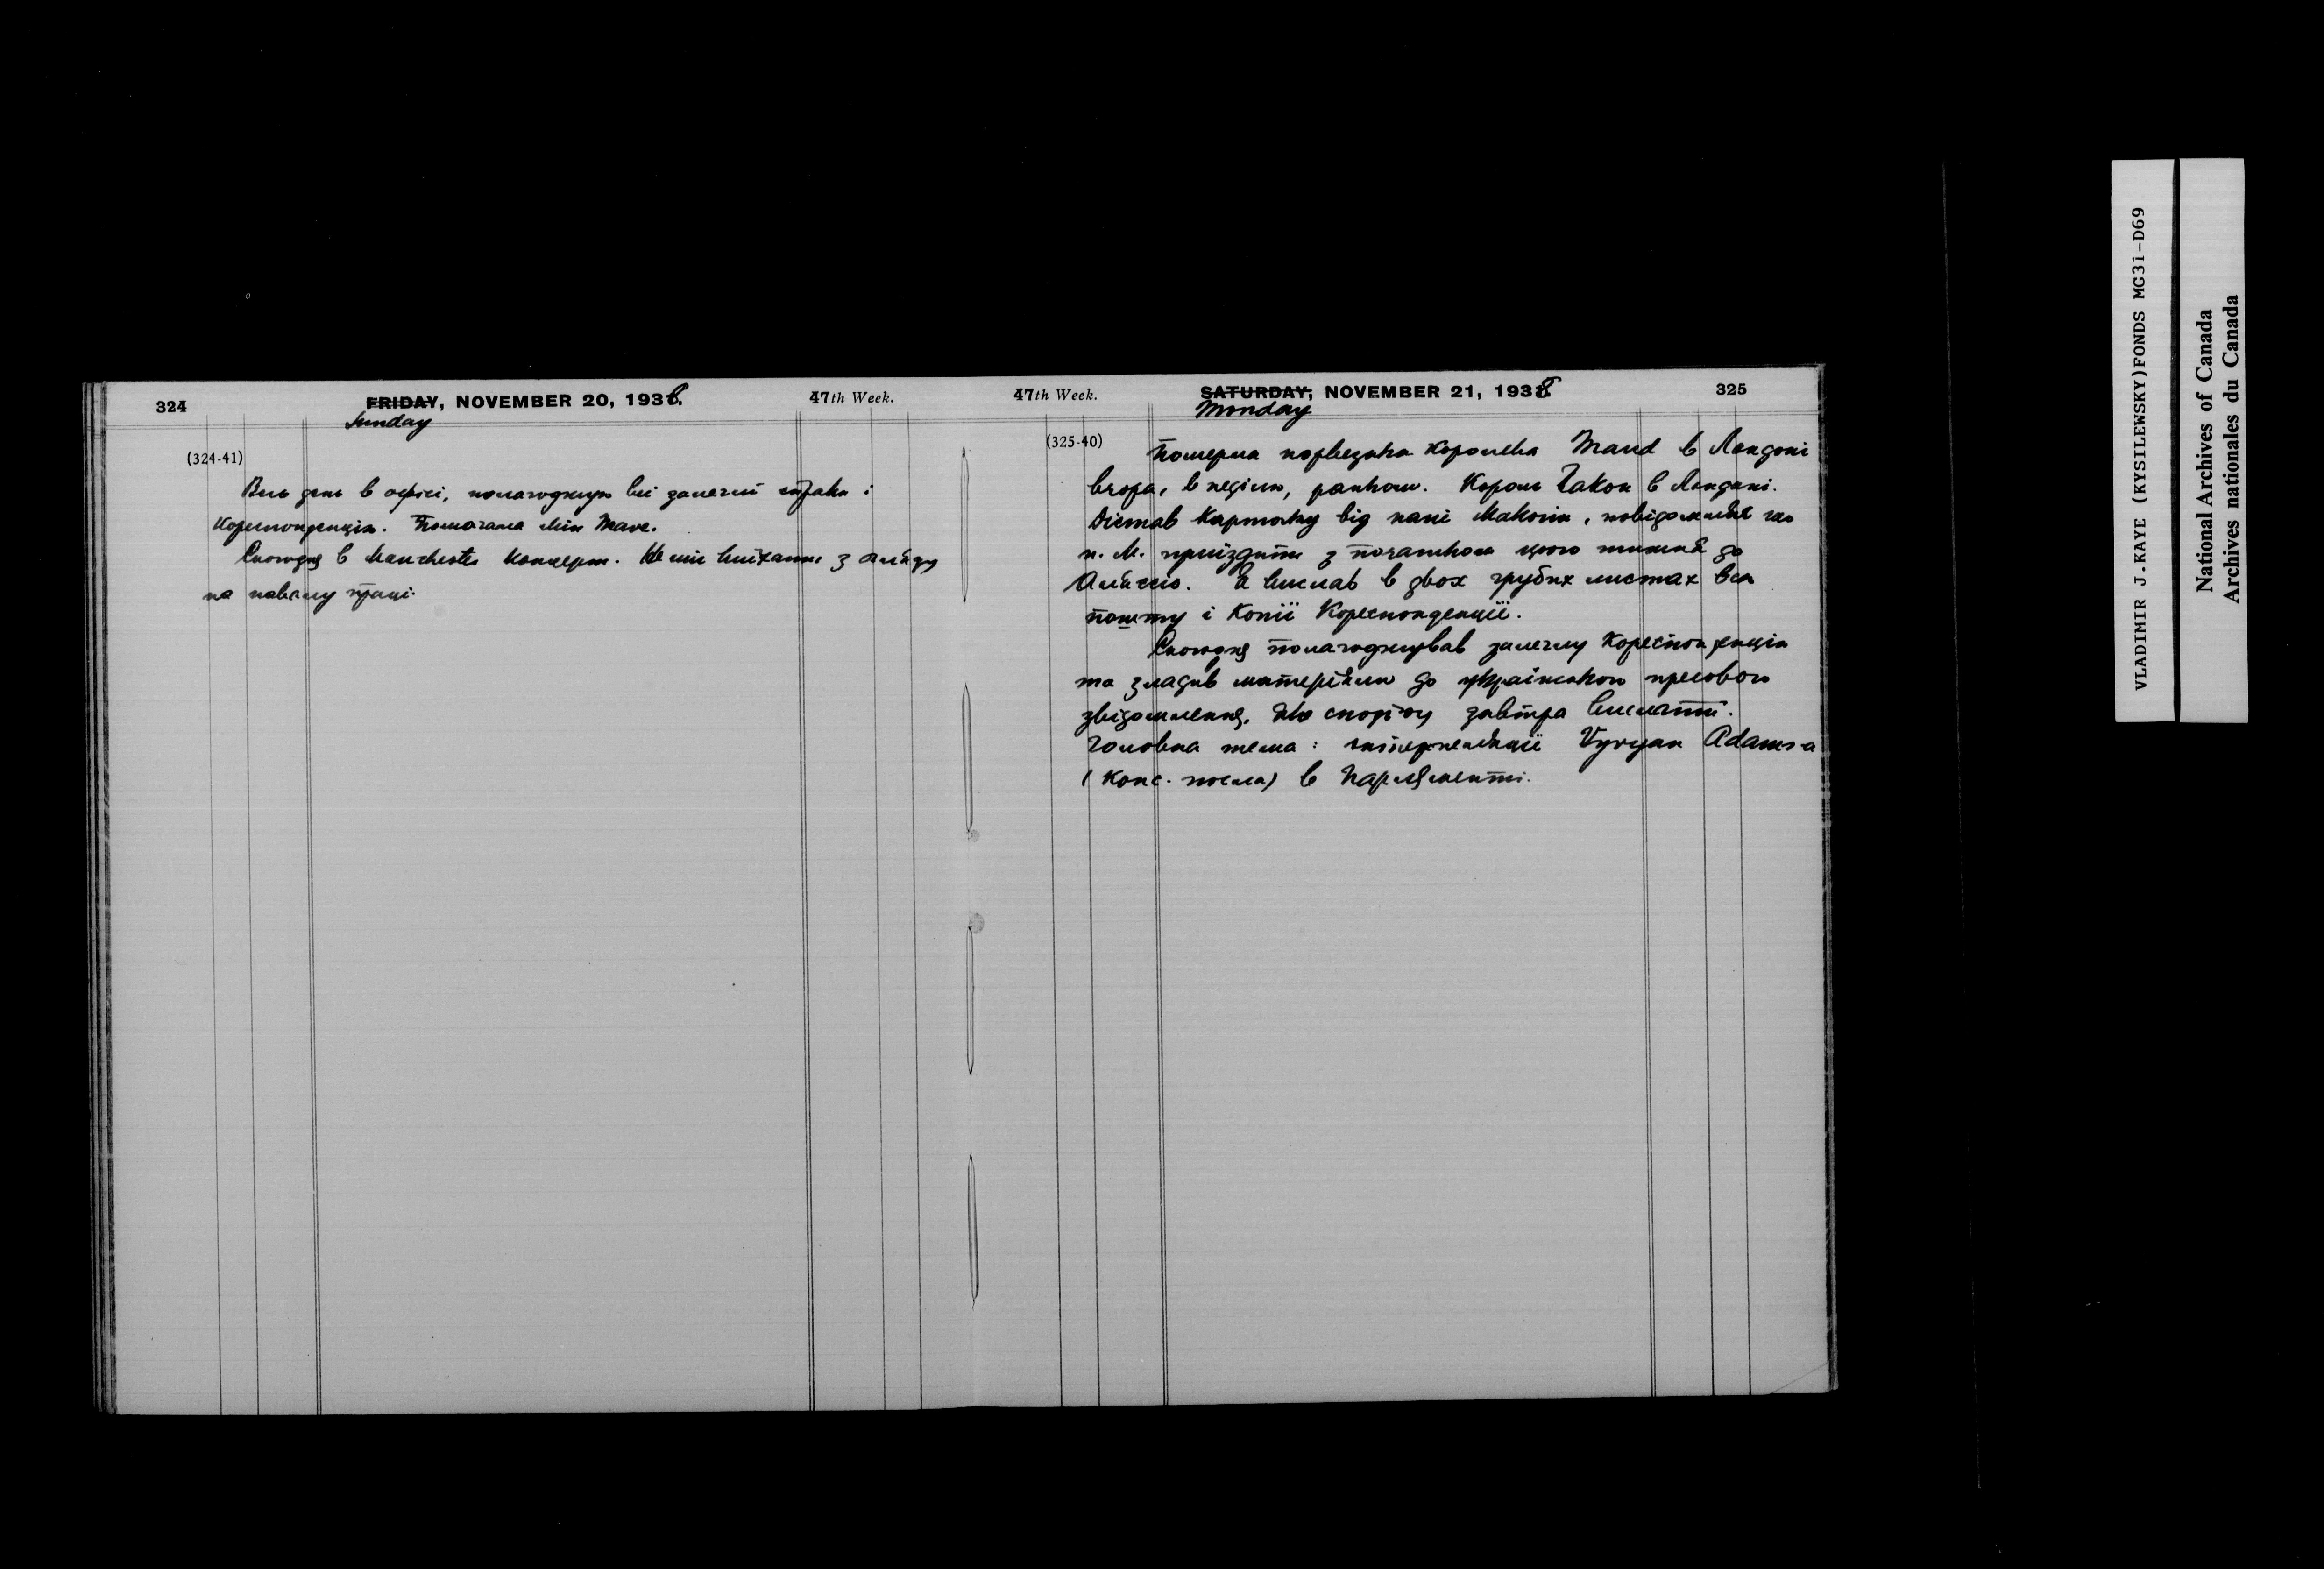 324
FRIDAY, NOVEMBER 20, 1938.
47th Week.
Sunday
(324-41)
Весь день в офісі, полагоджую всі залеглі справи і
кореспонденцію. Помагала Міс Mave.
Сьогодня в Manchester концерт. Не міг виїхати з огляду
на навалу праці.
47th Week.
SATURDAY, NOVEMBER 21, 1938
325
Monday
(325-40)
Померла норвезька королева Maud в Лондоні
вчора, в неділю, ранком. Король Гакон в Лондоні.
Дістав карточку від пані Маконін, повідомляє що
п. М. приїздить з початком цього тижня до
Аляссіо. Я вислав в двох грубих листах всю
пошту і копії кореспонденції.
Сьогодня полагоджував залеглу кореспонденцію
та зладив матеріяли до українського пресового
звідомлення, яке спорчу завтра вислати.
Головна тема: інтерпеляції Vyvyan Adams-а
(конс. посла) в Парляменті.
VLADIMIR J.KAYE (KYSILEWSKY)FONDS MG31-D69
National Archives of Canada
Archives nationales du Canada